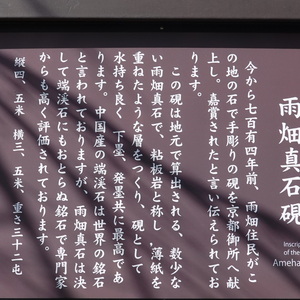 雨畑真石硯
Inscrip
of the
Ameha
今から七百有四年前、雨畑住民がこ
の地の石で手彫りの硯を京都御所へ献
上し。嘉賞されたと言い伝えられてお
ります。
この硯は地元で算出される、数少な
い雨畑真石で、粘板岩と称し,薄紙を
重ねたような層をつくり、硯として
水持ち良く　下墨、発墨共に最高であ
ります。中国産の端渓石は世界の銘石
と言われておりますが、雨畑真石は決
して端渓石にもおとらぬ銘石で専門家
からも高く評価されております。
縦四．五米　横三．五米、重さ三十二屯